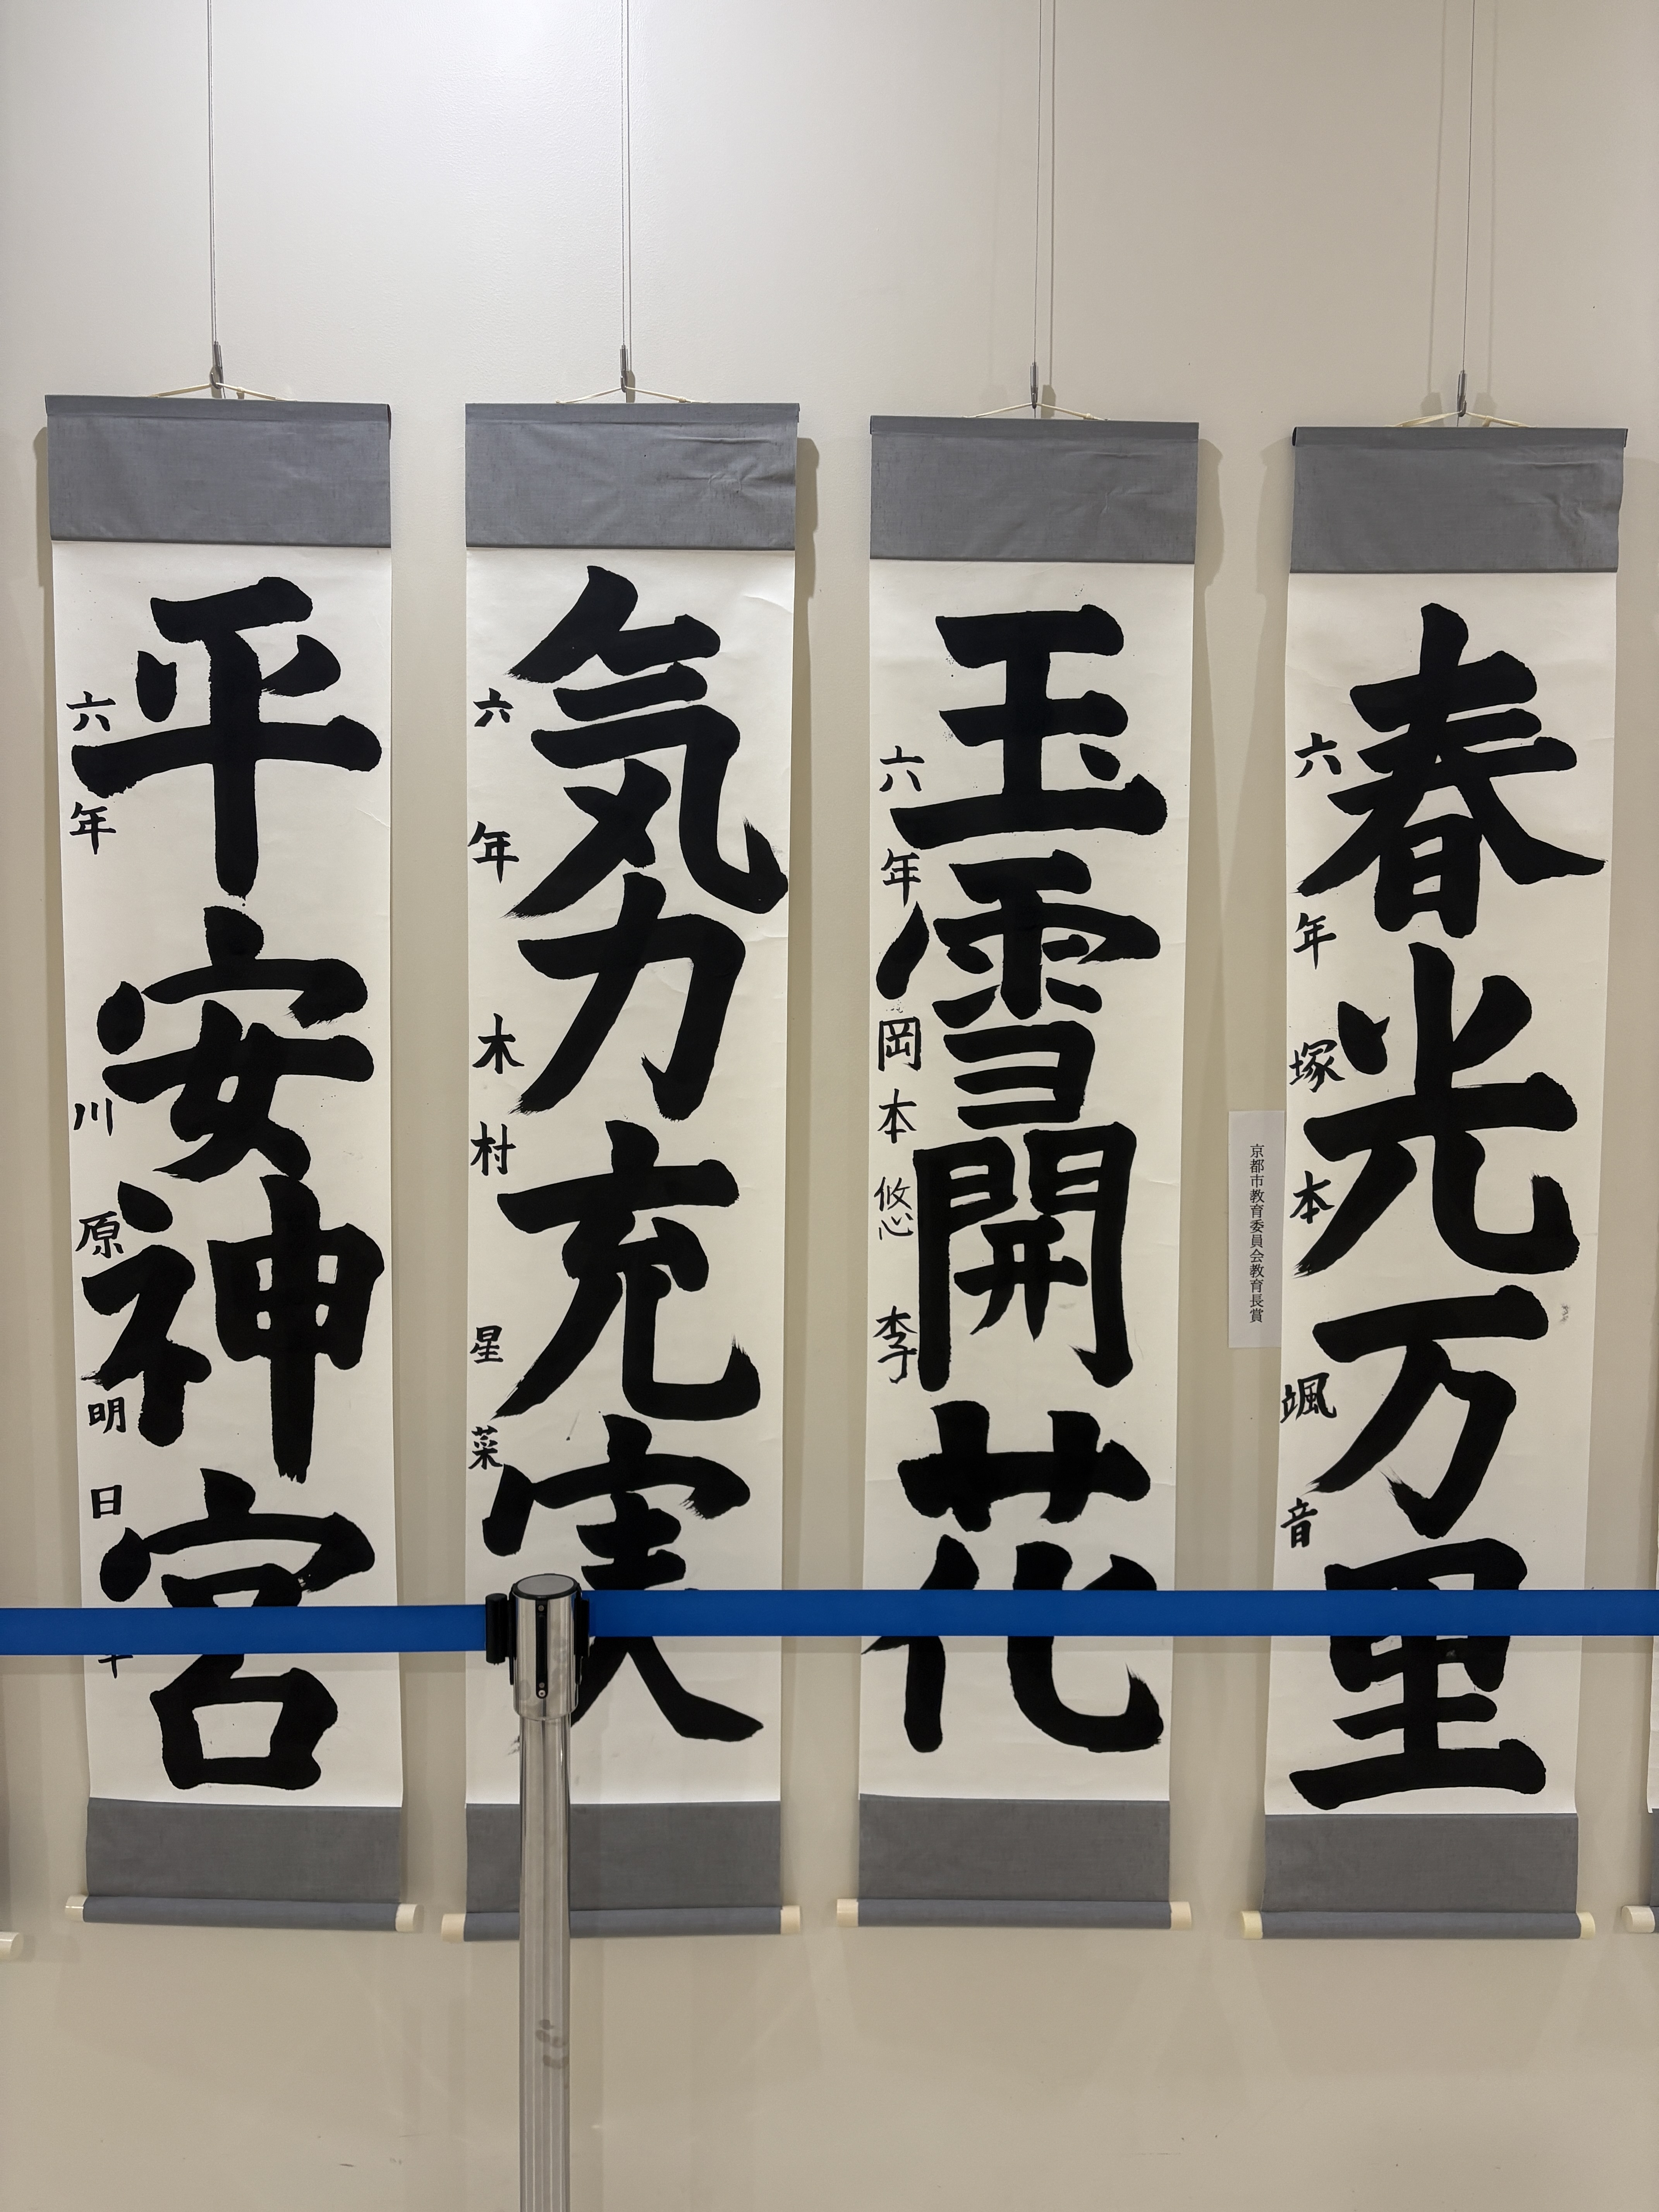 春光万里
六年 塚本 颯音
京都市教育委員会教育長賞
玉雪開花
六年 岡本 悠李
気力充実
六年 木村 星菜
平安神宮
六年 川原 明日